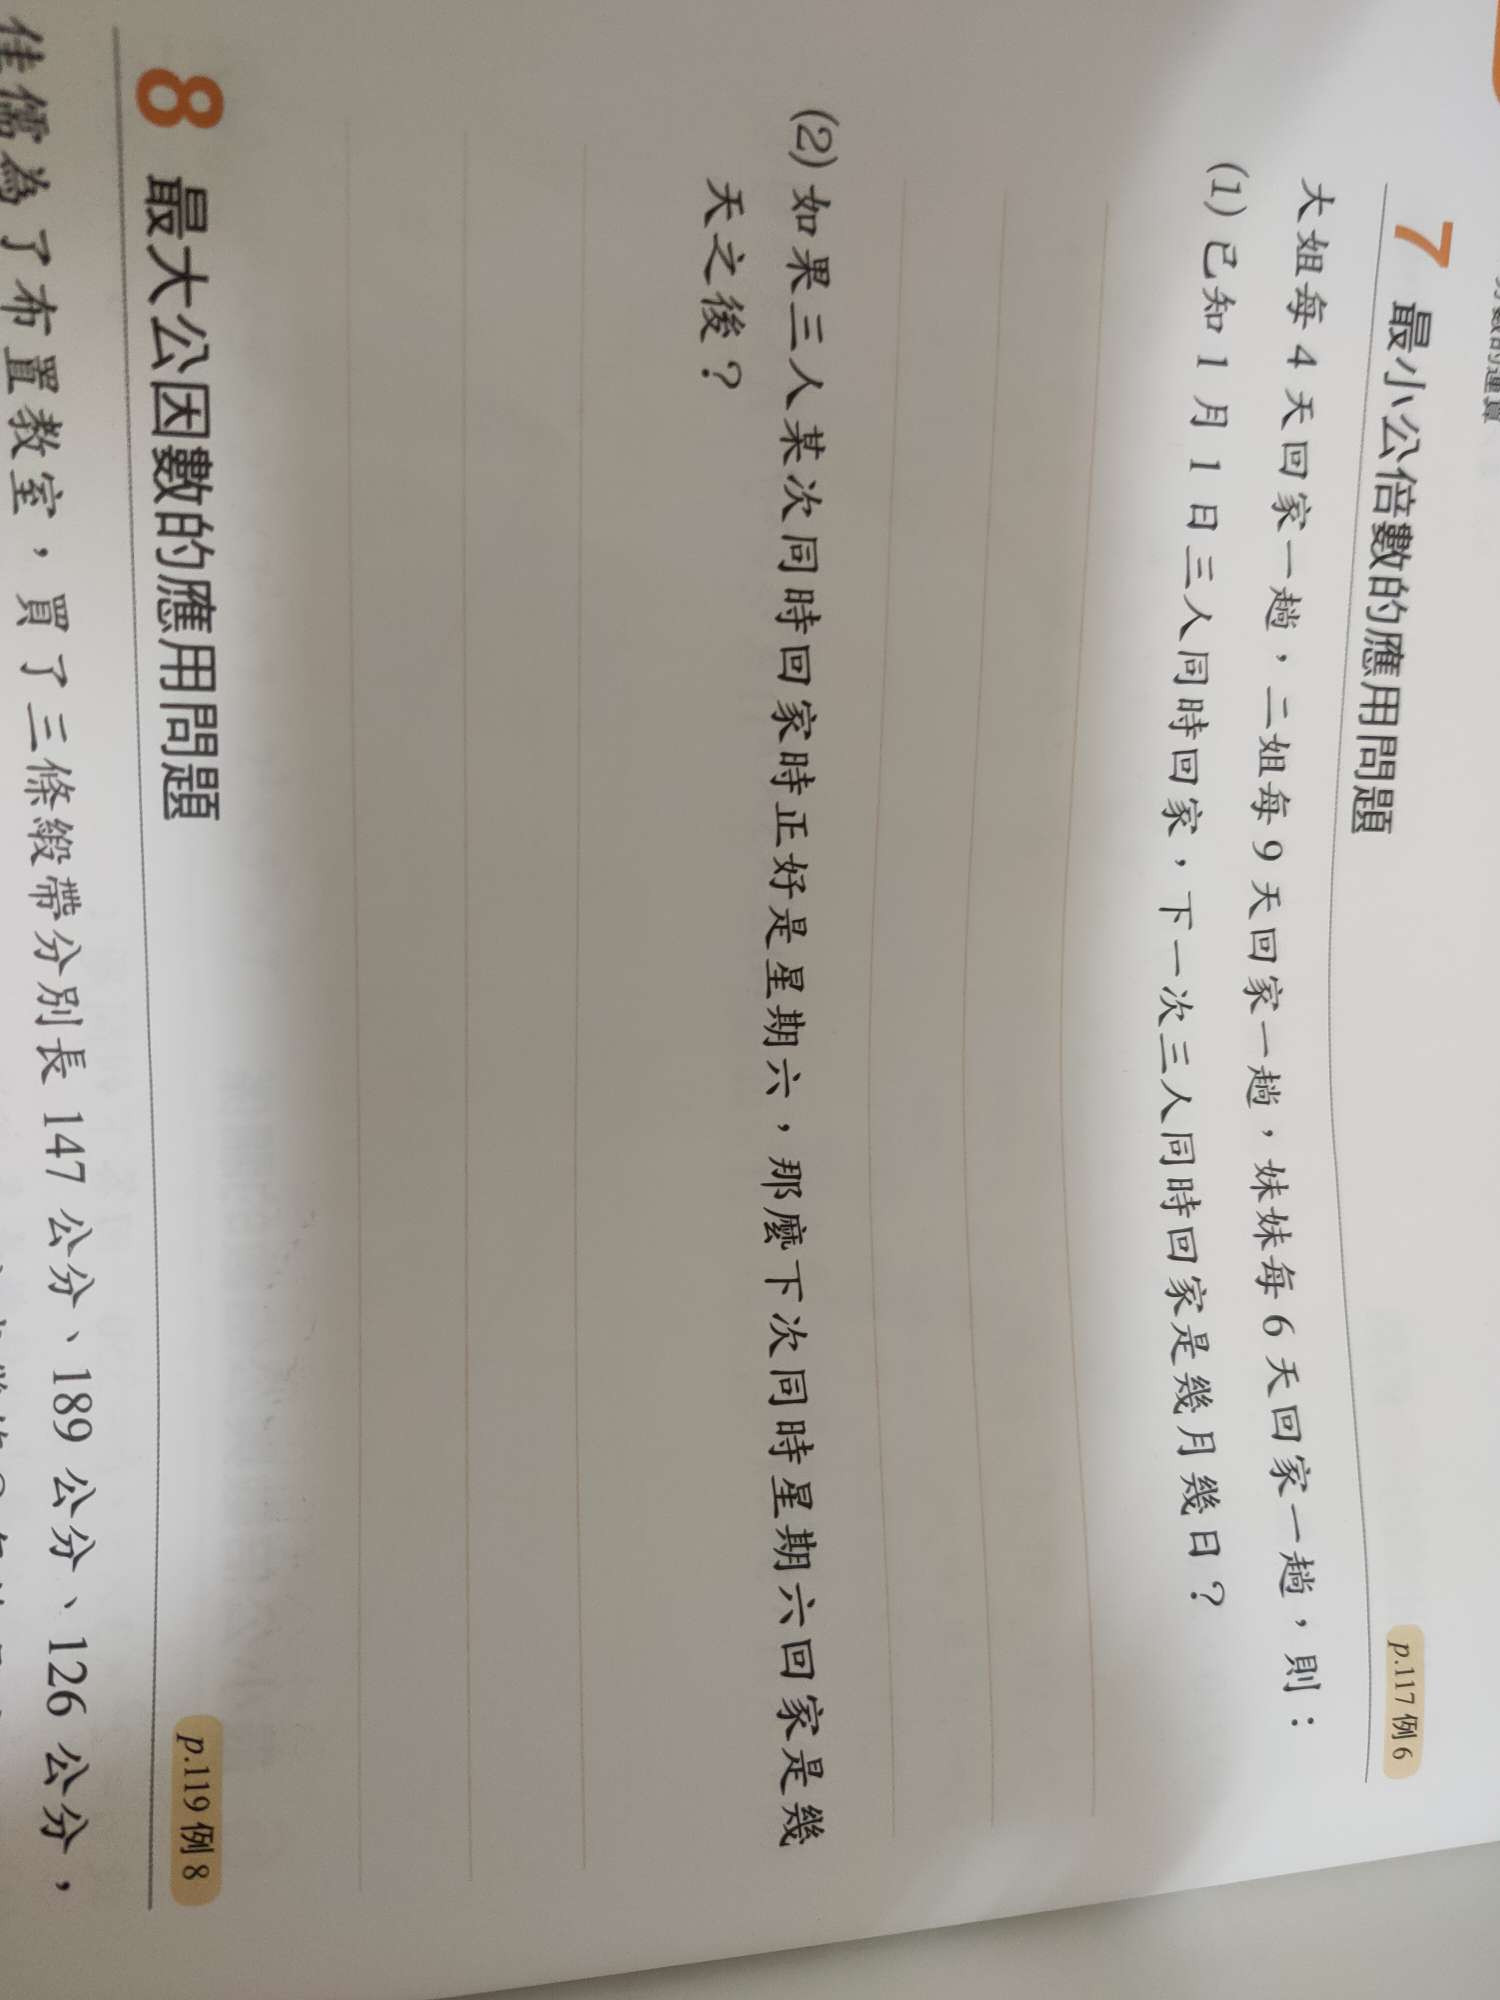 數的運算
7 最小公倍數的應用問題
p.117 例 6
大姐每 4 天回家一趟，二姐每 9 天回家一趟，妹妹每 6 天回家一趟，則：
(1) 已知 1 月 1 日三人同時回家，下一次三人同時回家是幾月幾日？
(2) 如果三人某次同時回家時正好是星期六，那麼下次同時星期六回家是幾
天之後？
8 最大公因數的應用問題
p.119 例 8
佳儒為了布置教室，買了三條緞帶分別長 147 公分、189 公分、126 公分，